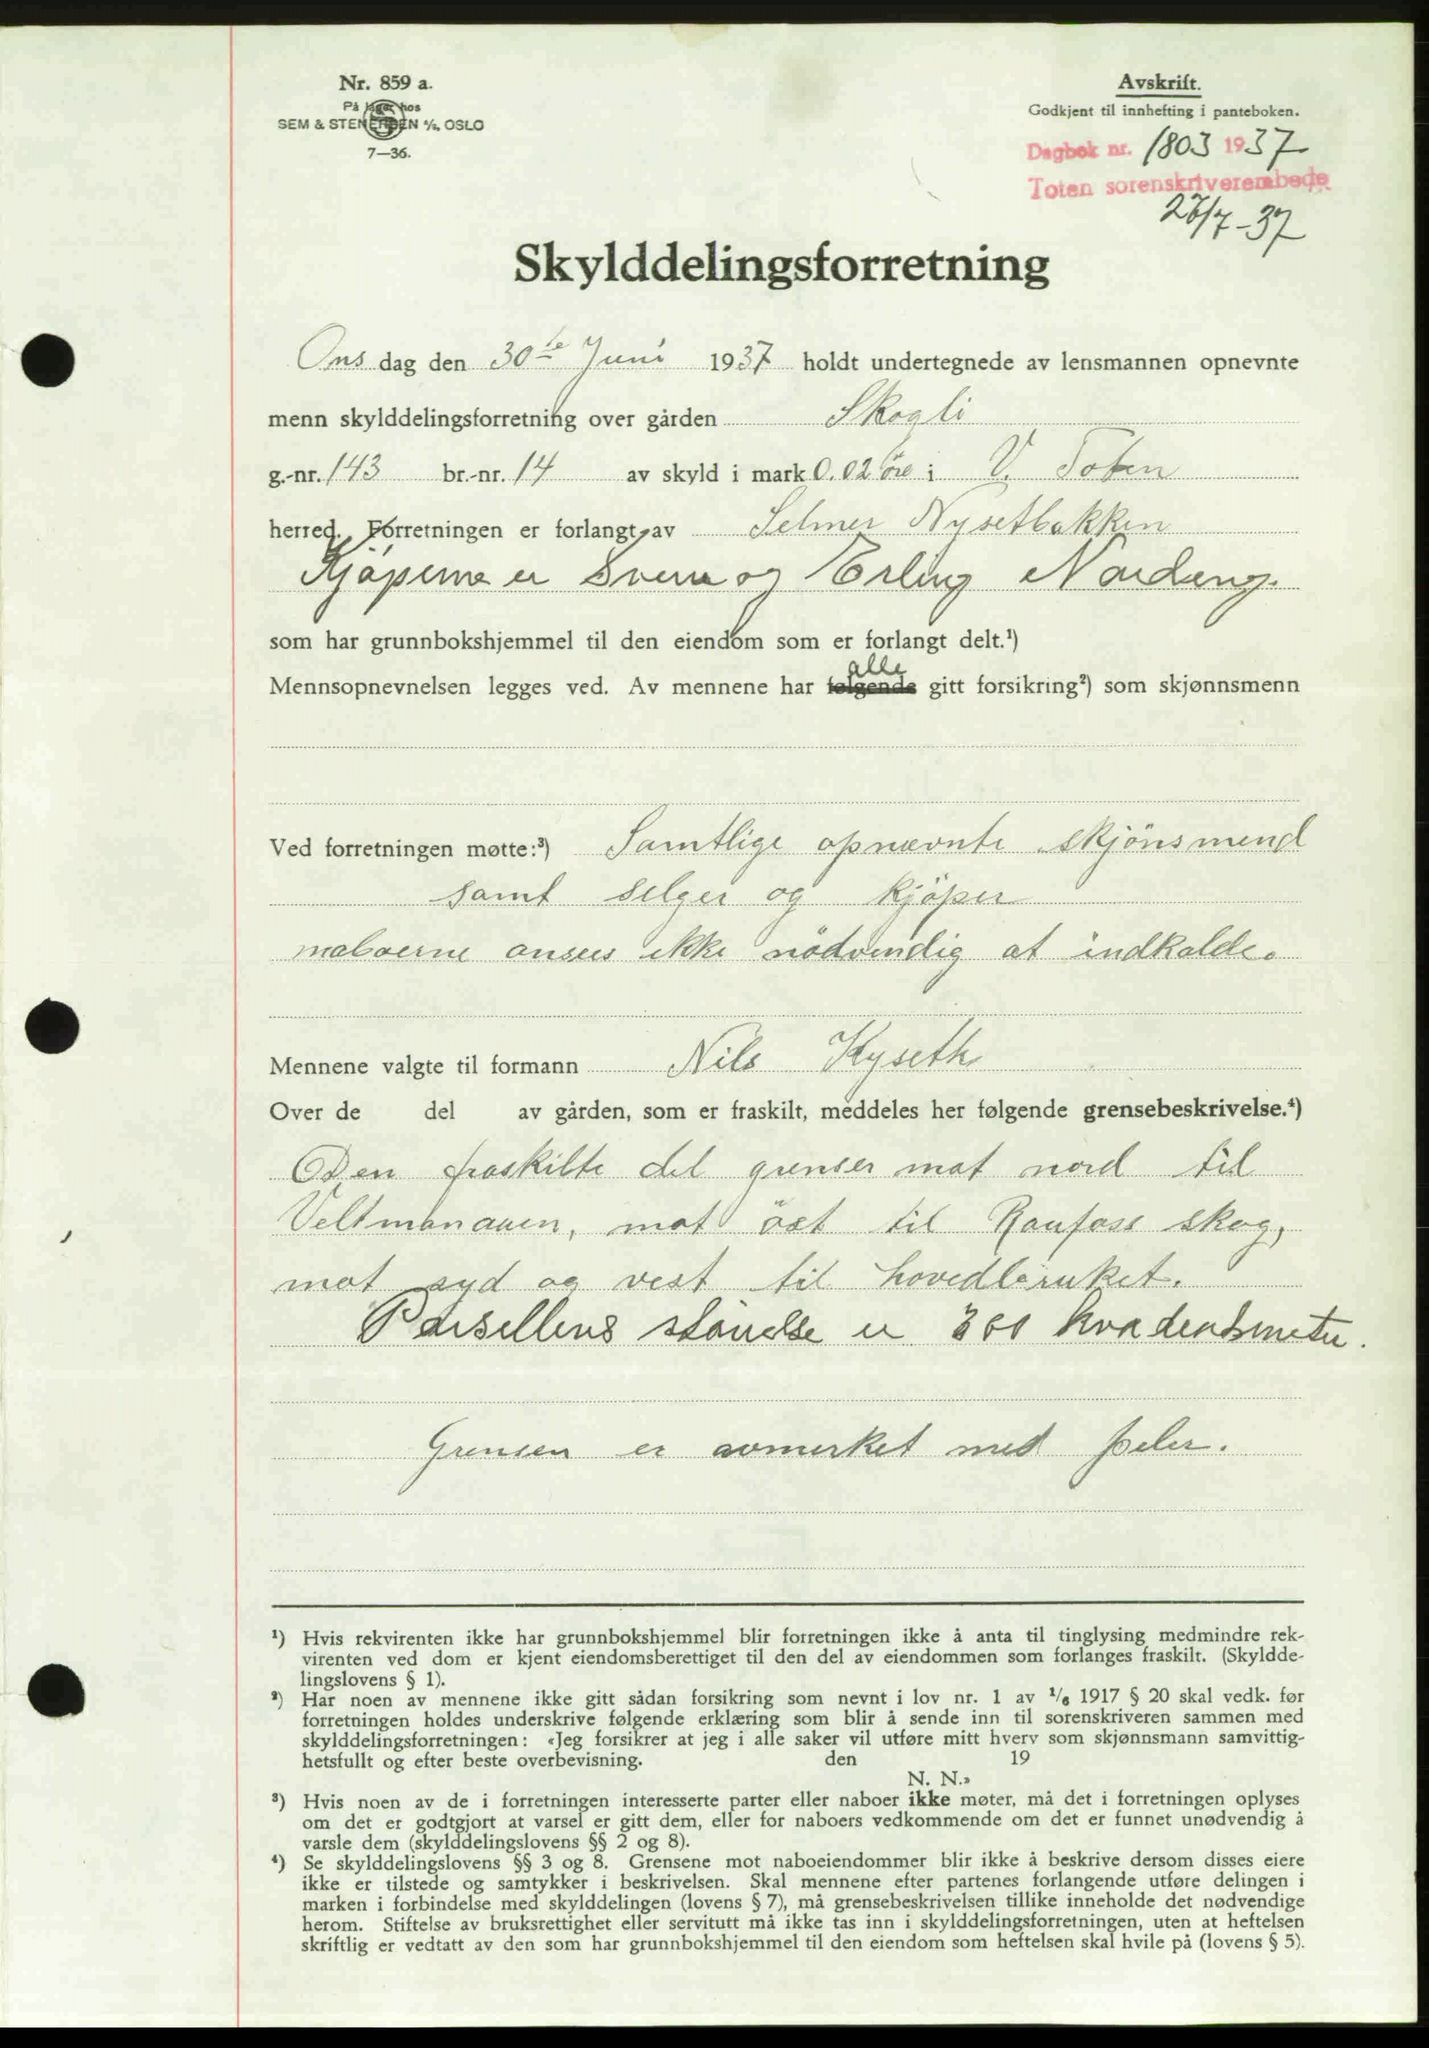 Nr. 859 a.
På lager hos
SEM & STENERSEN A/S, OSLO
7—36.
Avskrift.
Godkjent til innhefting i panteboken.
Dagbok nr. 1803 1937
Toten sorenskriverembede
26/7-37
Skylddelingsforretning
Ons dag den 30te Juni 1937 holdt undertegnede av lensmannen opnevnte
menn skylddelingsforretning over gården Skogli
g.-nr. 143 br.-nr. 14 av skyld i mark 0.02 øre i V. Toten
herred. Forretningen er forlangt av Selmer Nysetbakken
Kjøperne er Sverre og Erling Nordeng.
som har grunnbokshjemmel til den eiendom som er forlangt delt.¹)
alle
Mennsopnevnelsen legges ved. Av mennene har følgende gitt forsikring²) som skjønnsmenn
Ved forretningen møtte:³) Samtlige opnævnte skjönsmend
samt selger og kjöper
naboerne ansees ikke nödvendig at indkalde.
Mennene valgte til formann Nils Kyseth
Over de del av gården, som er fraskilt, meddeles her følgende grensebeskrivelse.⁴)
Den fraskilte del grenser mot nord til
Veltmanaaen, mot öst til Raufoss skog,
mot syd og vest til hovedbruket.
Parsellens størrelse er 300 kvadratmeter.
Grensen er avmerket med peler.
¹) Hvis rekvirenten ikke har grunnbokshjemmel blir forretningen ikke å anta til tinglysing medmindre rek-
virenten ved dom er kjent eiendomsberettiget til den del av eiendommen som forlanges fraskilt. (Skyldde-
lingslovens § 1).
²) Har noen av mennene ikke gitt sådan forsikring som nevnt i lov nr. 1 av 1/6 1917 § 20 skal vedk. før
forretningen holdes underskrive følgende erklæring som blir å sende inn til sorenskriveren sammen med
skylddelingsforretningen: «Jeg forsikrer at jeg i alle saker vil utføre mitt hverv som skjønnsmann samvittig-
hetsfullt og efter beste overbevisning. den 19
N. N.»
³) Hvis noen av de i forretningen interesserte parter eller naboer ikke møter, må det i forretningen oplyses
om det er godtgjort at varsel er gitt dem, eller for naboers vedkommende om det er funnet unødvendig å
varsle dem (skylddelingslovens §§ 2 og 8).
⁴) Se skylddelingslovens §§ 3 og 8. Grensene mot naboeiendommer blir ikke å beskrive dersom disses eiere
ikke er tilstede og samtykker i beskrivelsen. Skal mennene efter partenes forlangende utføre delingen i
marken i forbindelse med skylddelingen (lovens § 7), må grensebeskrivelsen tillike inneholde det nødvendige
herom. Stiftelse av bruksrettighet eller servitutt må ikke tas inn i skylddelingsforretningen, uten at heftelsen
skriftlig er vedtatt av den som har grunnbokshjemmel til den eiendom som heftelsen skal hvile på (lovens § 5).